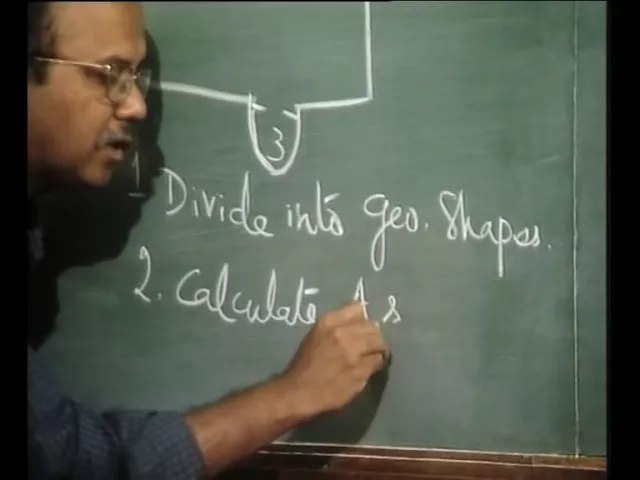 3
1 Divide into Geo. Shapes.
2. Calculate A.s